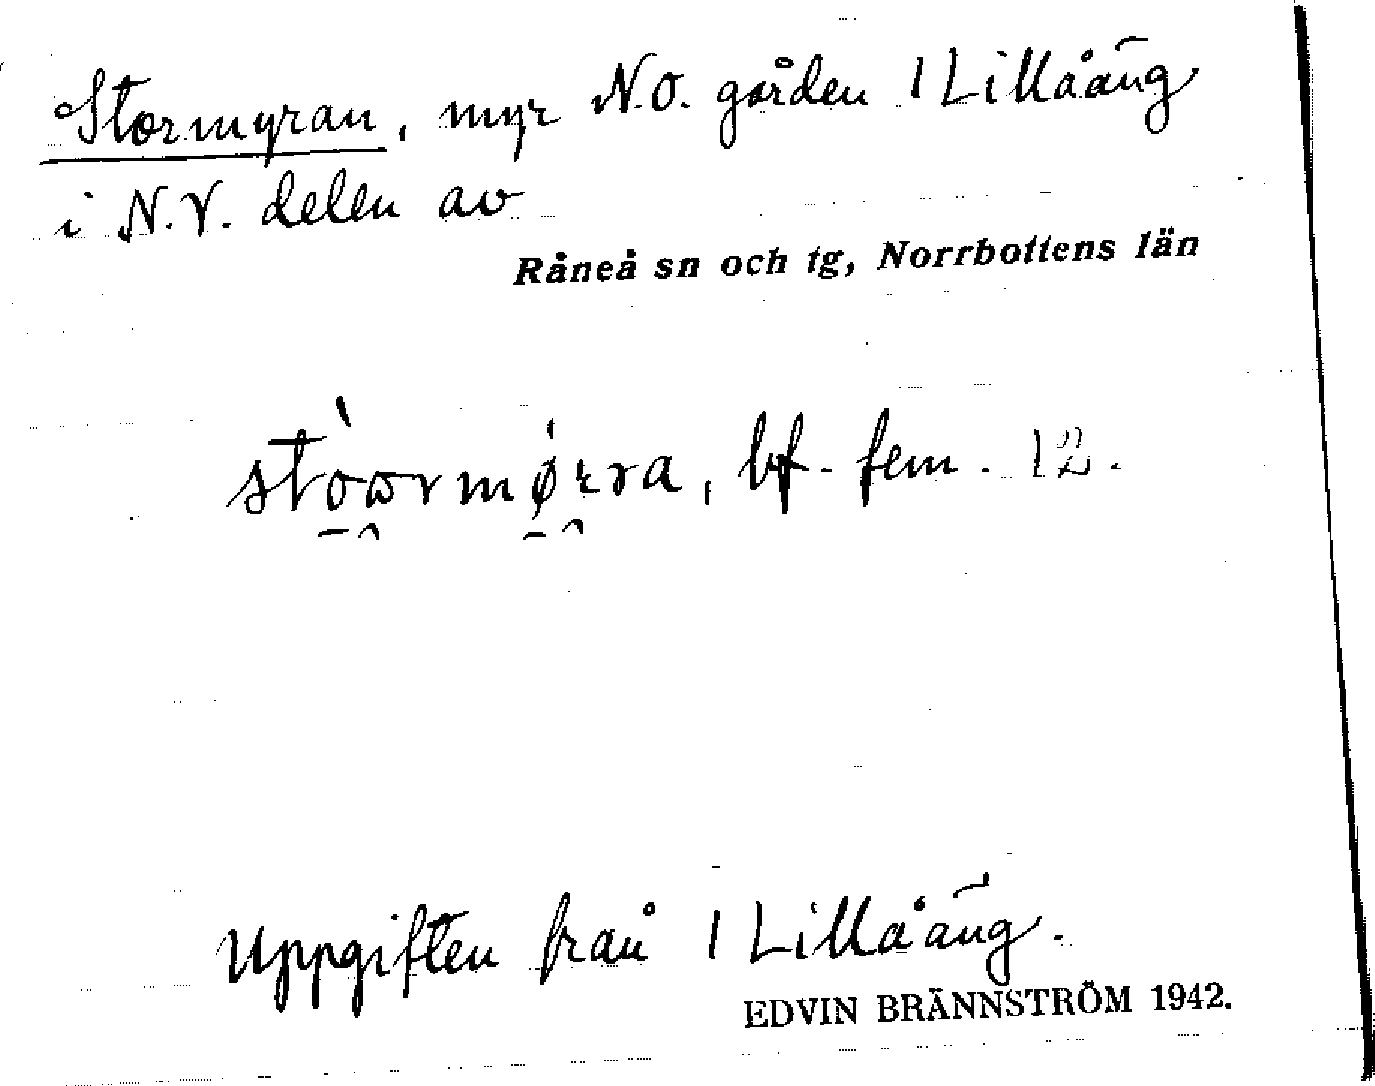 Stormyran, myr N.O. gården 1 Lillåäng
i N.V. delen av
Råneå sn och tg, Norrbottens län
stòωrmǿrra, bf. fem. 12.
Uppgiften från 1 Lillåäng.
EDVIN BRÄNNSTRÖM 1942.